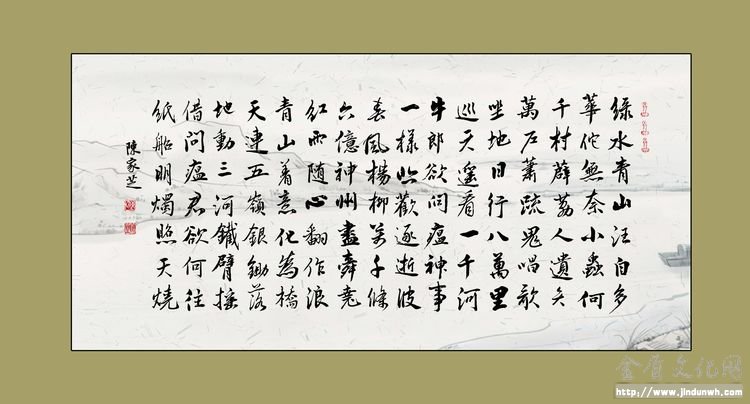 綠水青山枉自多
華佗無奈小蟲何
千村薜荔人遺矢
萬户蕭疏鬼唱歌
坐地日行八萬里
巡天遙看一千河
牛郎欲問瘟神事
一樣悲歡逐逝波
春風楊柳萬千條
六億神州盡舜堯
紅雨隨心翻作浪
青山着意化為橋
天連五嶺銀鋤落
地動三河鐵臂搖
借問瘟君欲何往
紙船明燭照天燒
陳家芝
金盾文化网
http://www.jindunwh.com